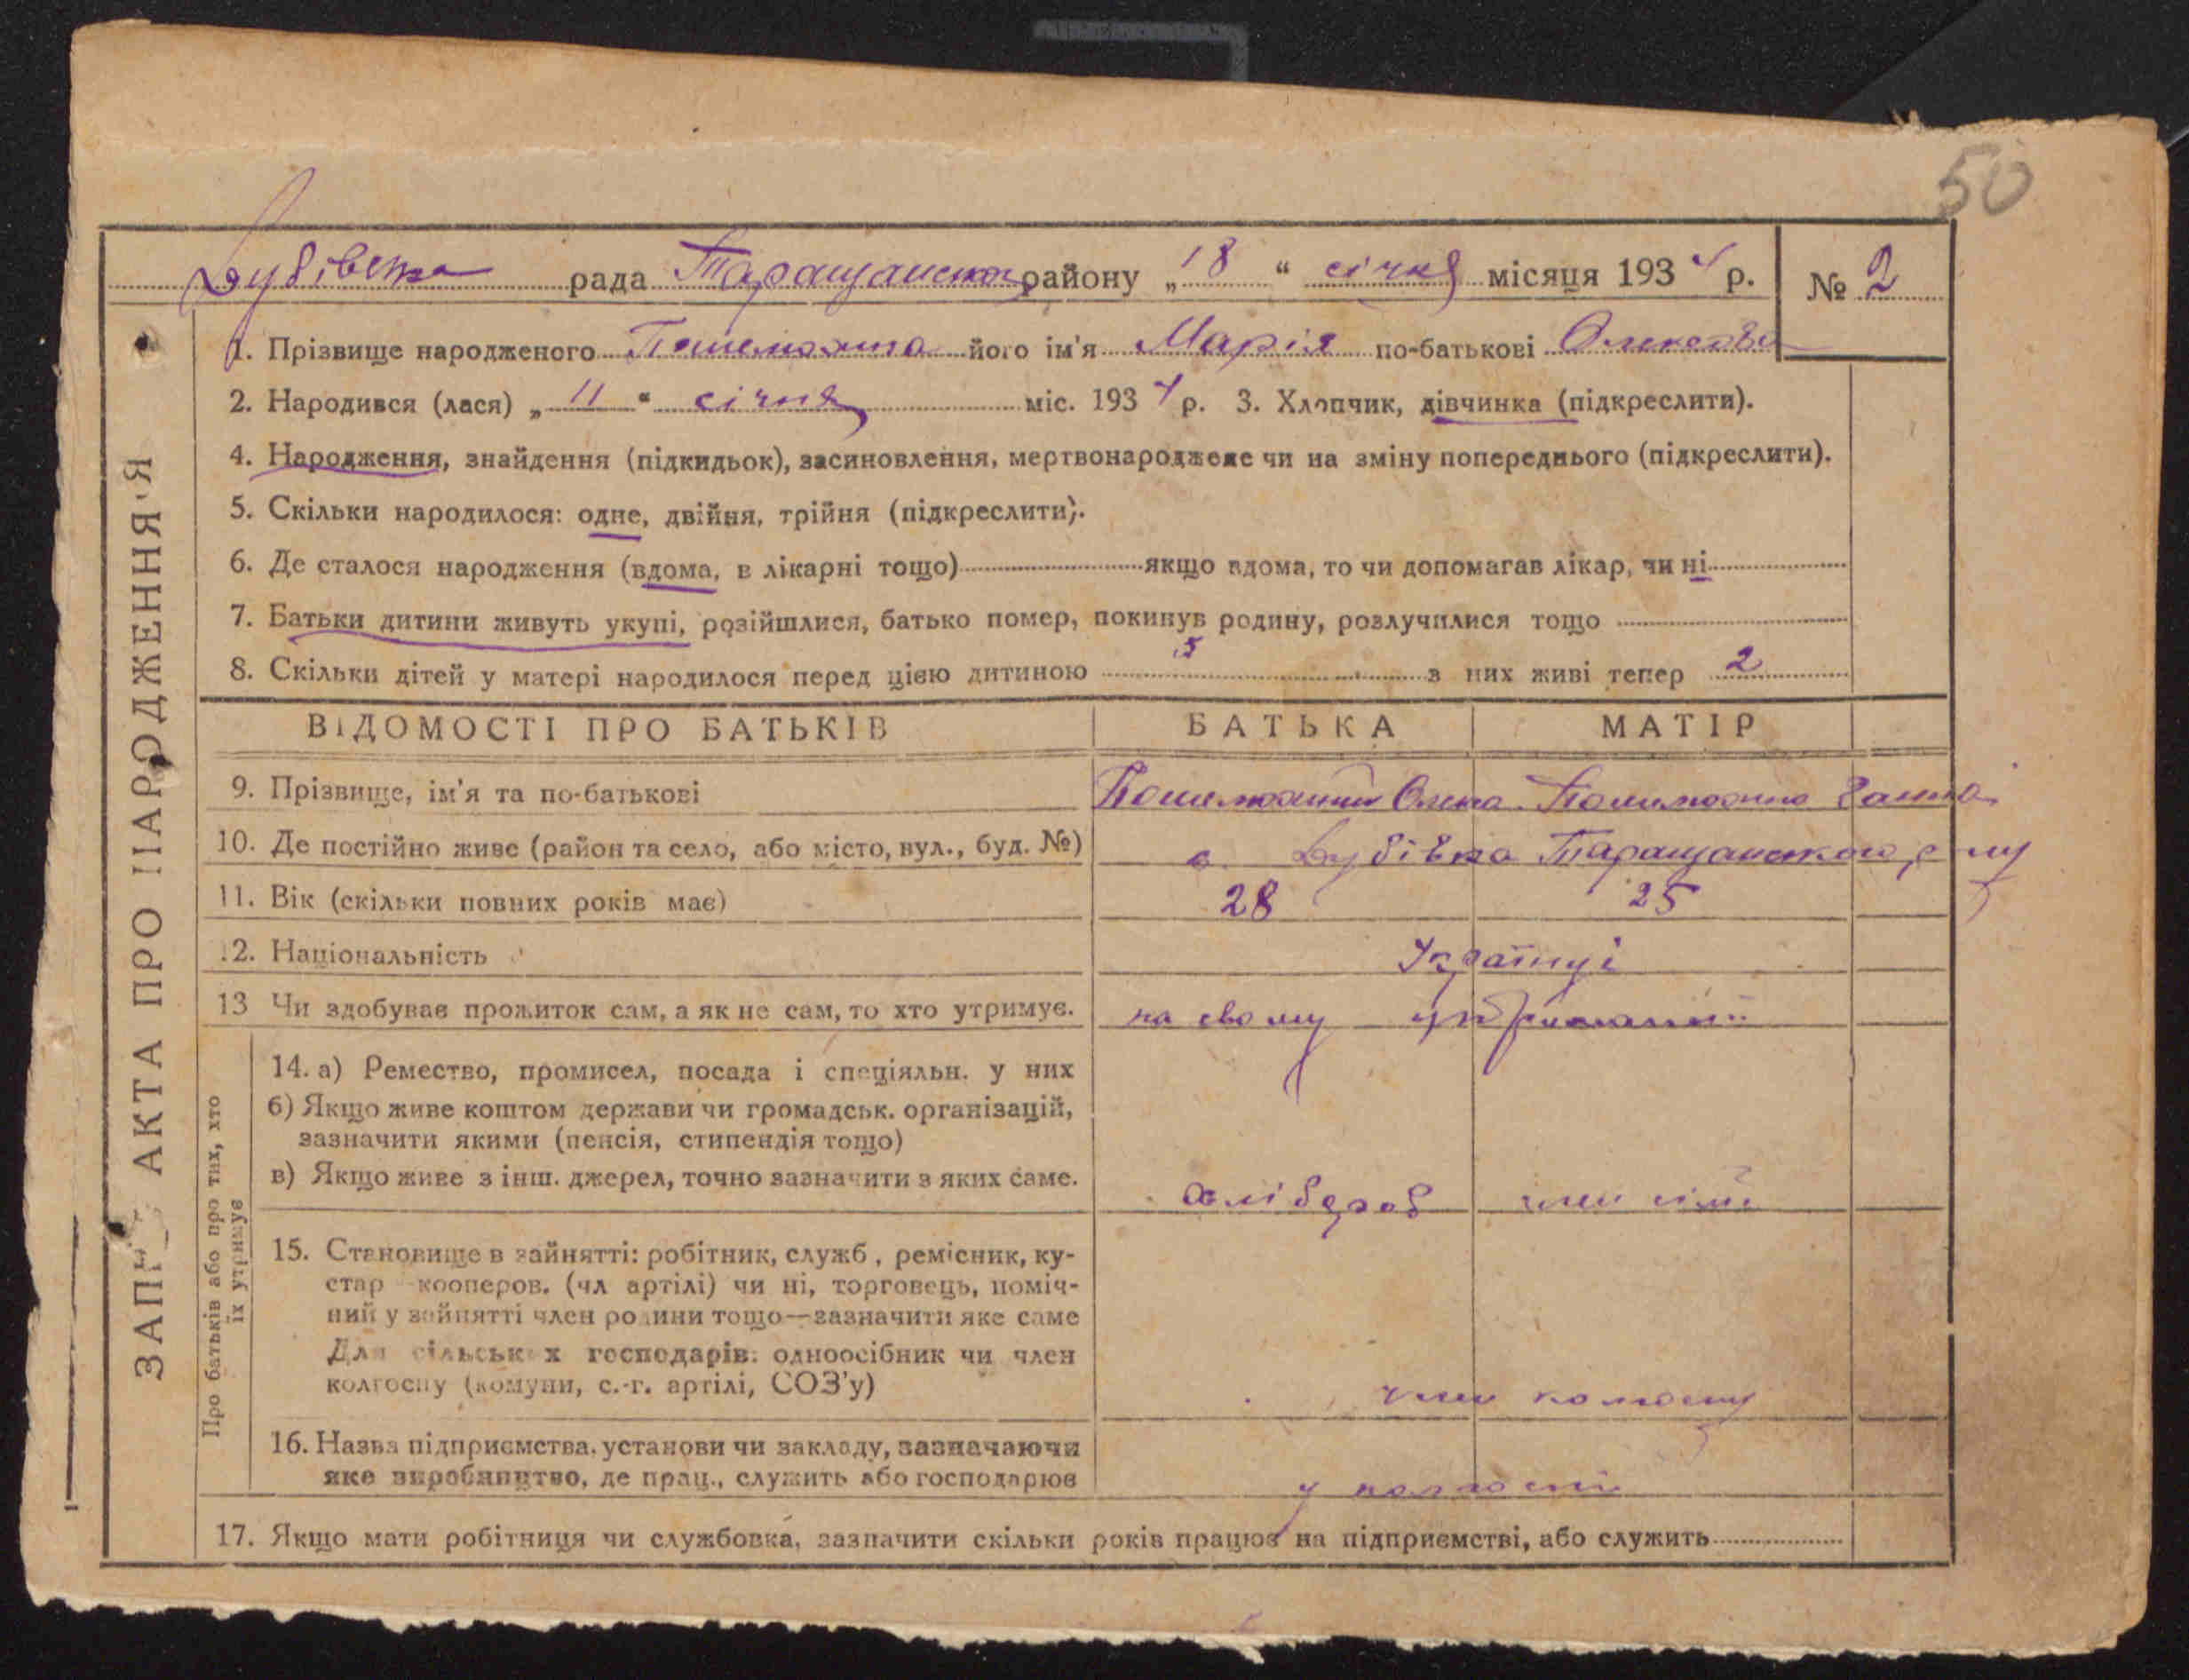 50
Дубівська рада Таращанського району „18“ січня місяця 1934 р. № 2
ЗАПИС АКТА ПРО НАРОДЖЕННЯ
1. Прізвище народженого його ім'я Марія по-батькові
2. Народився (лася) „11“ січня міс. 1934 р. 3. Хлопчик, дівчинка (підкреслити).
4. Народження, знайдення (підкидьок), засиновлення, мертвонароджене чи на зміну попереднього (підкреслити).
5. Скільки народилося: одне, двійня, трійня (підкреслити).
6. Де сталося народження (вдома, в лікарні тощо) якщо вдома, то чи допомагав лікар, чи ні
7. Батьки дитини живуть укупі, розійшлися, батько помер, покинув родину, розлучилися тощо
8. Скільки дітей у матері народилося перед цією дитиною 5 з них живі тепер 2
ВІДОМОСТІ ПРО БАТЬКІВ БАТЬКА МАТІР
9. Прізвище, ім'я та по-батькові Олекса Ганна
10. Де постійно живе (район та село, або місто, вул., буд. №) с. Дубівка Таращанського р-ну
11. Вік (скільки повних років має) 28 25
12. Національність Українці
13 Чи здобуває прожиток сам, а як не сам, то хто утримує. на свому утриманні
Про батьків або про тих, хто їх утримує
14. а) Ремество, промисел, посада і спеціяльн. у них
б) Якщо живе коштом держави чи громадськ. організацій,
зазначити якими (пенсія, стипендія тощо)
в) Якщо живе з інш. джерел, точно зазначити з яких саме. хлібороб член сімї
15. Становище в зайнятті: робітник, служб, ремісник, ку-
стар кооперов. (чл артілі) чи ні, торговець, поміч-
ний у зайнятті член родини тощо—зазначити яке саме
Для сільських господарів: одноосібник чи член
колгоспу (комуни, с.-г. артілі, СОЗ'у) член колгоспу
16. Назва підприємства, установи чи закладу, зазначаючи
яке виробництво, де прац., служить або господарює у колгоспі
17. Якщо мати робітниця чи службовка, зазначити скільки років працює на підприємстві, або служить